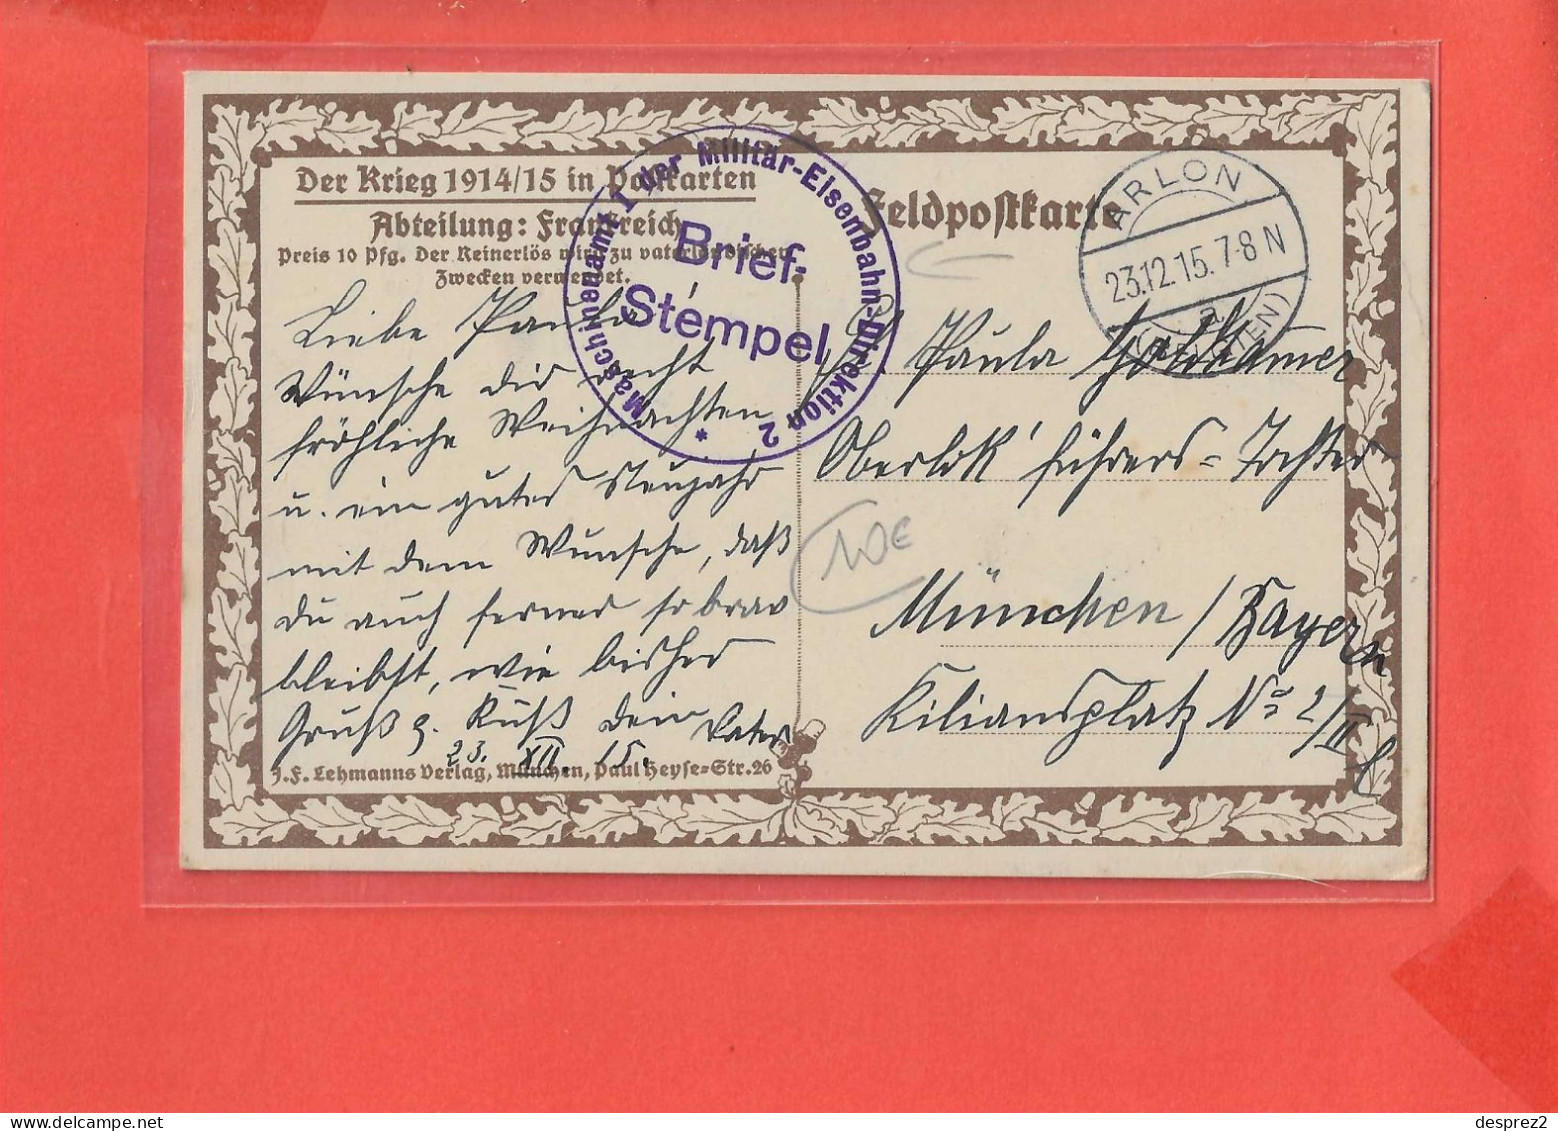 Der Krieg 1914/15 in Postkarten
Abteilung: Frankreich
Preis 10 Pfg. Der Reinerlös wird zu vaterländischen
Zwecken verwendet.
Maschinenamt I der Militär-Eisenbahn-Direktion 2
*
Brief-
Stempel
Feldpostkarte
ARLON
23.12.15. 7-8 N
a
(BELGIEN)
Liebe Paula
Wünsche dir recht
fröhliche Weihnachten
u. ein gutes Neujahr
mit dem Wunsche, daß
du auch ferner so brav
bleibst, wie bisher
Gruß u. Kuß dein Vater
23. XII. 15.
J.F. Lehmanns Verlag, München, Paul Heyse-Str. 26
Frl. Paula
Oberlok'führers-Tochter
München / Bayern
Kiliansplatz No 2/III
10€
desprez2